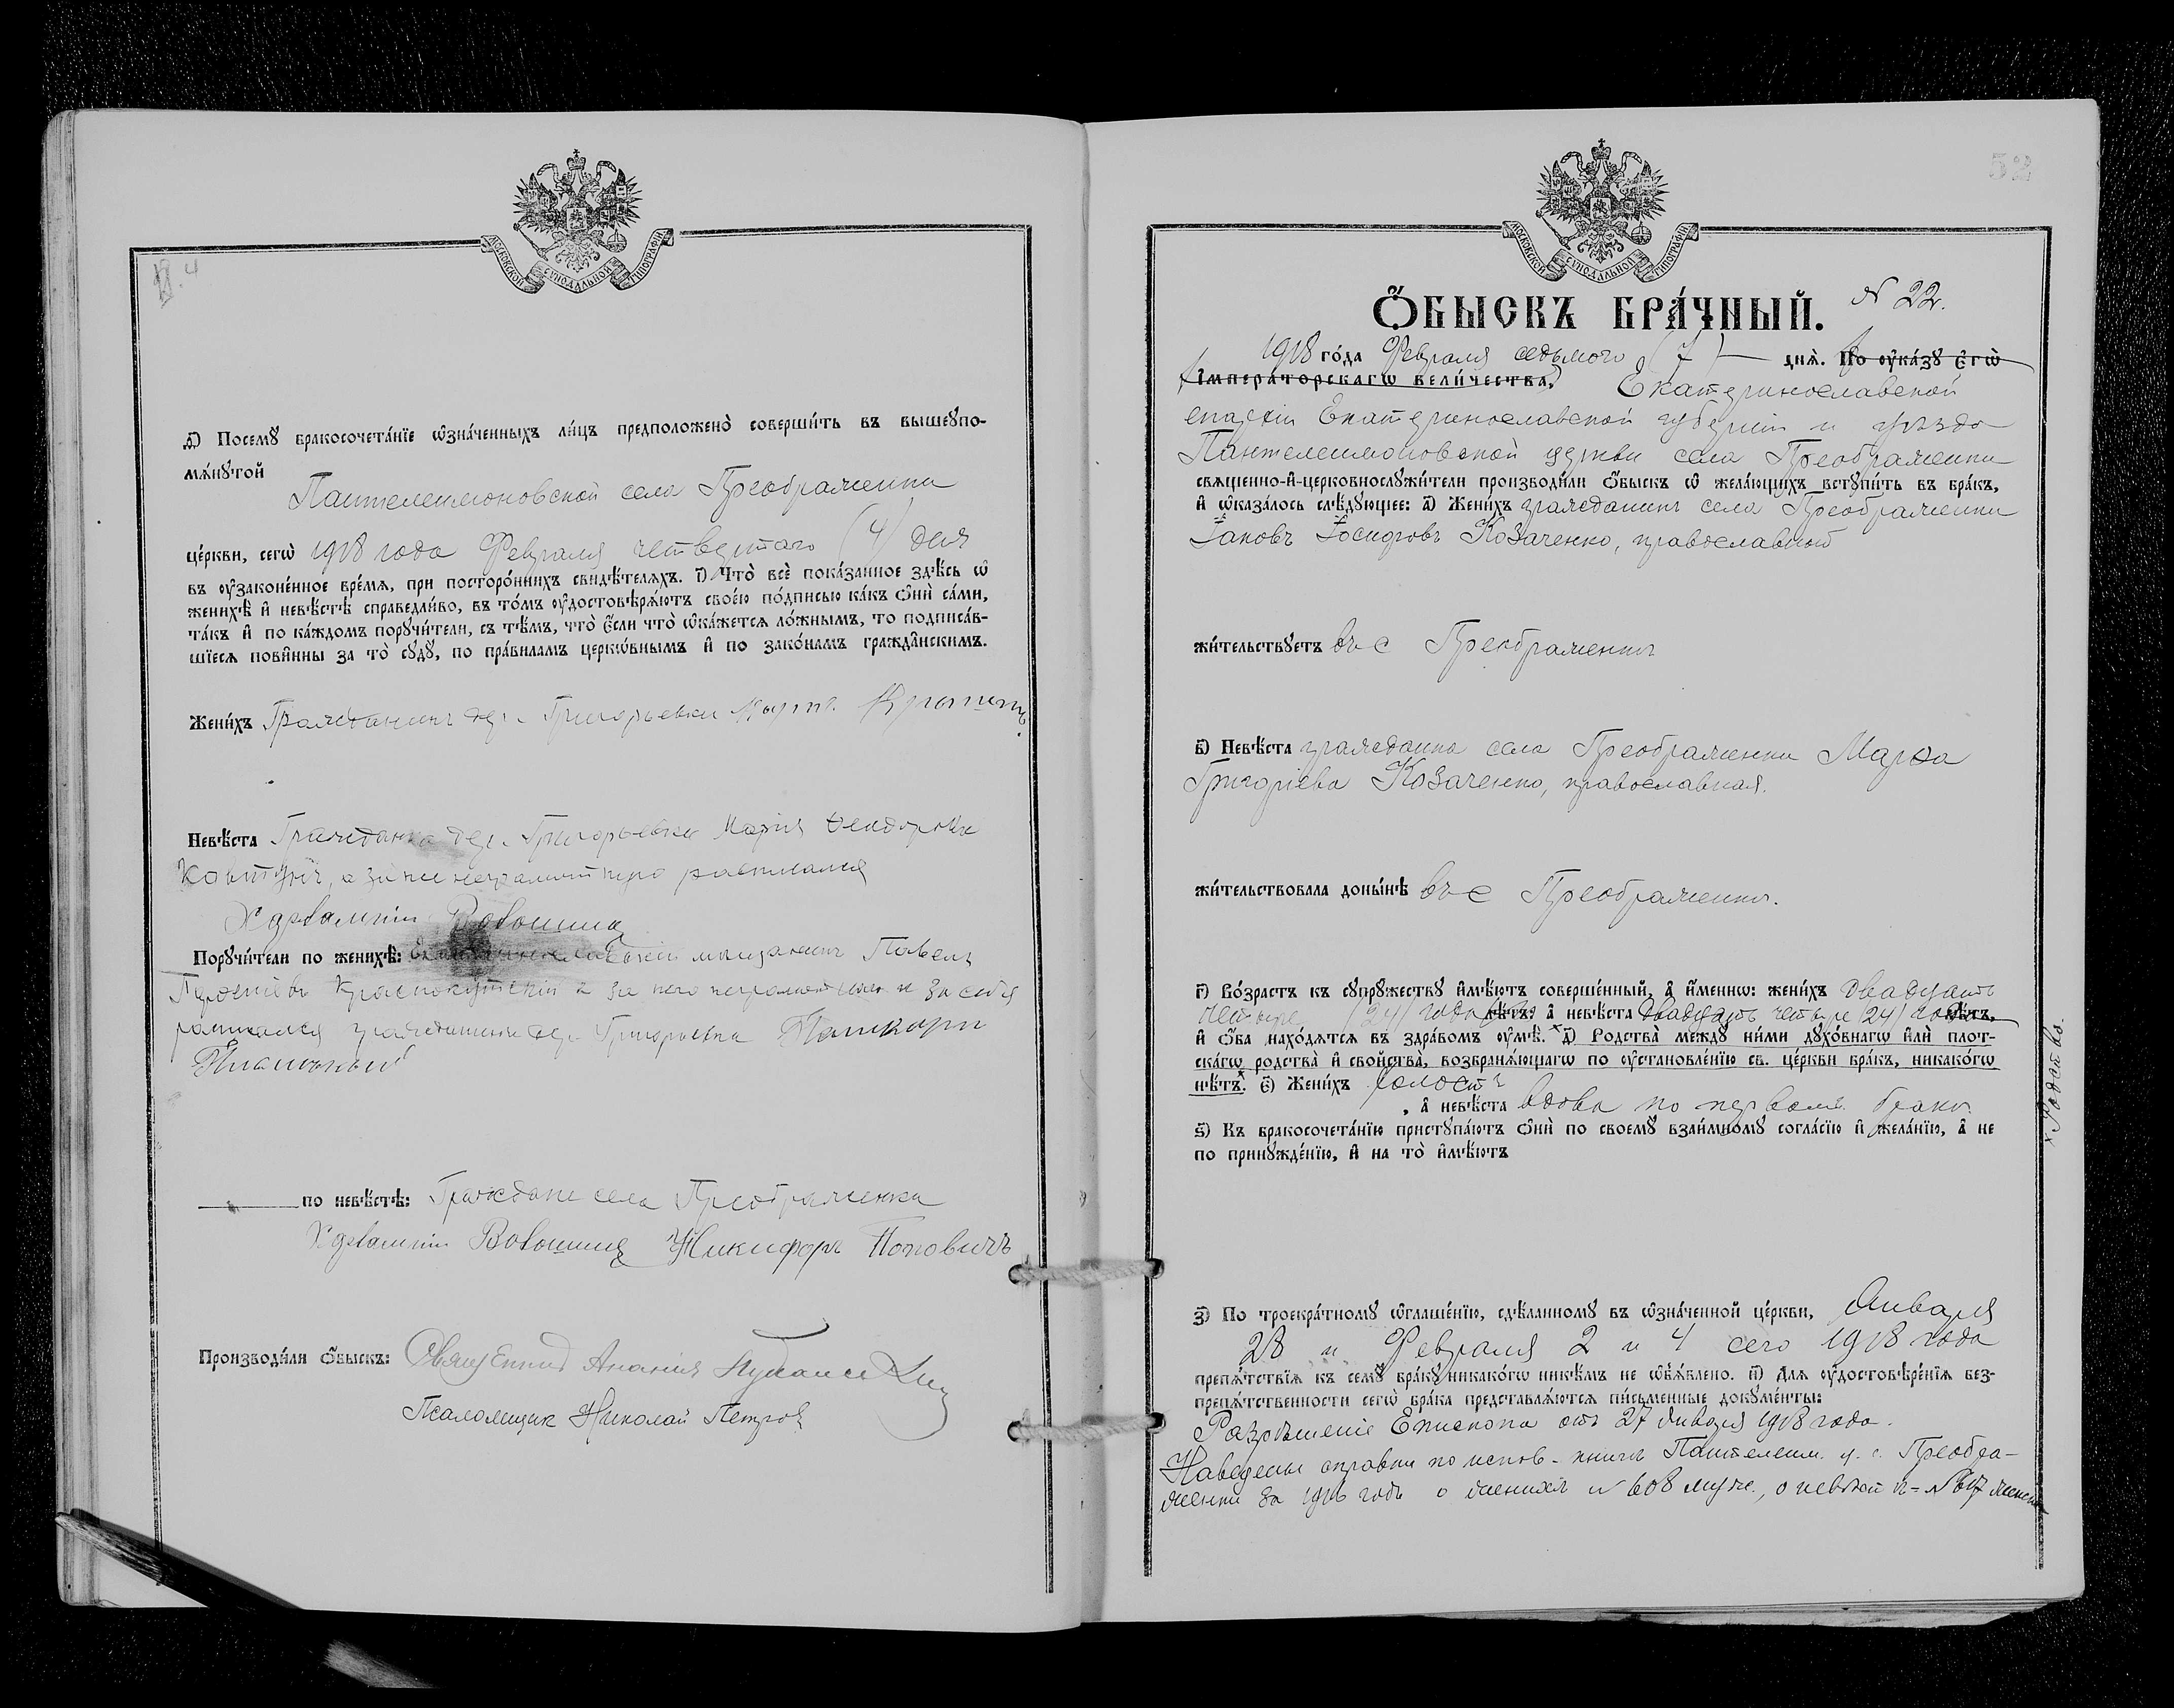 МОСКОВСКОЙ СѴНОДАЛЬНОЙ ТИПОГРАФІИ
ѳ҃) Посемꙋ̀ бракосочета́нїе ѡ҆зна́ченныхъ ли́цъ предположено̀ соверши́ть въ вышеꙋпо-
мѧ́нꙋтой
Пантелеимоновской села Преображенки
це́ркви, сегѡ̀ 1918 года Февраля четвертаго (4) дня
въ ᲂу҆зако́ненное вре́мѧ, при посторо́ннихъ свидѣ́телѧхъ. і҃) Что̀ всѐ пока́занное здѣ́сь ѡ҆
женихѣ̀ и҆ невѣ́стѣ справедли́во, въ то́мъ ᲂу҆достовѣрѧ́ютъ свое́ю по́дписью ка́къ ѻ҆нѝ са́ми,
та́къ и҆ по ка́ждомъ порꙋчи́тели, съ тѣ́мъ, что̀ є҆́сли что̀ ѡ҆ка́жетсѧ ло́жнымъ, то подписа́в-
шїесѧ пови́нны за то̀ сꙋдꙋ̀, по пра́виламъ церко́внымъ и҆ по зако́намъ гражда́нскимъ.
Жени́хъ Гражданинъ дер. Григорьевки
Невѣ́ста Гражданка дер. Григорьевки Марія Феодорова
а за нее неграмотную расписался
Волошина
Порꙋчи́тели по женихѣ̀: мещанинъ Павелъ
Краснокутскій и за него неграмотнаго и за себя
расписался гражданинъ дер. Григорьевки
по невѣ́стѣ: Граждане села Преображенки
Волошинъ Никифоръ Поповичъ
Производи́ли ѻ҆́быскъ: Священникъ Ананія
Псаломщик Николай Петров
52
МОСКОВСКОЙ СѴНОДАЛЬНОЙ ТИПОГРАФІИ
Ѻ҆́БЫСКЪ БРА́ЧНЫЙ. N 22.
1918 го́да Февраля седьмого (7) днѧ̀. По ᲂу҆ка́зꙋ є҆гѡ̀
І҆мпера́торскагѡ вели́чества, Екатеринославской
епархіи Екатеринославской губерніи и уезда
Пантелеимоновской церкви села Преображенки
свѧще́нно-и҆-церковнослꙋжи́тели производи́ли ѻ҆́быскъ ѡ҆ жела́ющихъ встꙋпи́ть въ бра́къ,
и҆ ѡ҆каза́лось слѣ́дꙋющее: а҃) Жени́хъ гражданинъ села Преображенки
Іаковъ Іосифовъ Козаченко, православный
жи́тельствꙋетъ въ с Преображенки
в҃) Невѣ́ста гражданка села Преображенки Марфа
Григоріева Козаченко, православная.
жи́тельствовала доны́нѣ въ с Преображенки.
г҃) Во́зрастъ къ сꙋпрꙋ́жествꙋ и҆мѣ́ютъ соверше́нный, а҆ и҆́меннѡ: жени́хъ двадцать
четыре (24) года лѣ́тъ, а҆ невѣ́ста двадцать четыре (24) года лѣ́тъ,
и҆ ѻ҆́ба нахо́дѧтсѧ въ здра́вомъ ᲂу҆мѣ̀. х д҃) Родства̀ междꙋ̀ ни́ми дꙋхо́внагѡ и҆лѝ плот-
ска́гѡ родства̀ и҆ сво́йства̀, возбранѧ́ющагѡ по ᲂу҆становле́нїю св. це́ркви бра́къ, никако́гѡ
нѣ́тъ. х є҃) Жени́хъ холостъ
, а҆ невѣ́ста вдова по первомъ браке
ѕ҃) Къ бракосочета́нїю пристꙋпа́ютъ ѻ҆нѝ по своемꙋ̀ взаи́мномꙋ согла́сїю и҆ жела́нїю, а҆ не
по принꙋжде́нїю, и҆ на то̀ и҆мѣ́ютъ
з҃) По троекра́тномꙋ ѡ҆глаше́нїю, сдѣ́ланномꙋ въ ѡ҆зна́ченной це́ркви, Января
28 и Февраля 2 и 4 сего 1918 года
препѧ́тствїѧ къ семꙋ̀ бра́кꙋ никако́гѡ никѣ́мъ не ѡ҆б̾ѧ́влено. и҃) Для ᲂу҆достовѣре́нїѧ без-
препѧ́тственности сегѡ̀ бра́ка представлѧ́ютсѧ пи́сьменные докꙋме́нты:
Разрѣшеніе Епископа отъ 27 Января 1918 года.
Наведены справки по испов. книгѣ Пантелеим. ц. с. Преобра-
женки за 1916 годъ о женихѣ N 608 мужс., о невѣстѣ
х Родство.